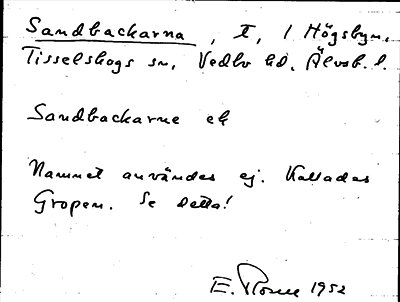 Sandbackarna, I, 1 Högsbyn,
Tisselskogs sn, Vedbo hd, Älvsb. l.
Sandbackarne ek
Namnet användes ej. Kallades
Gropen. Se detta!
E. 1952